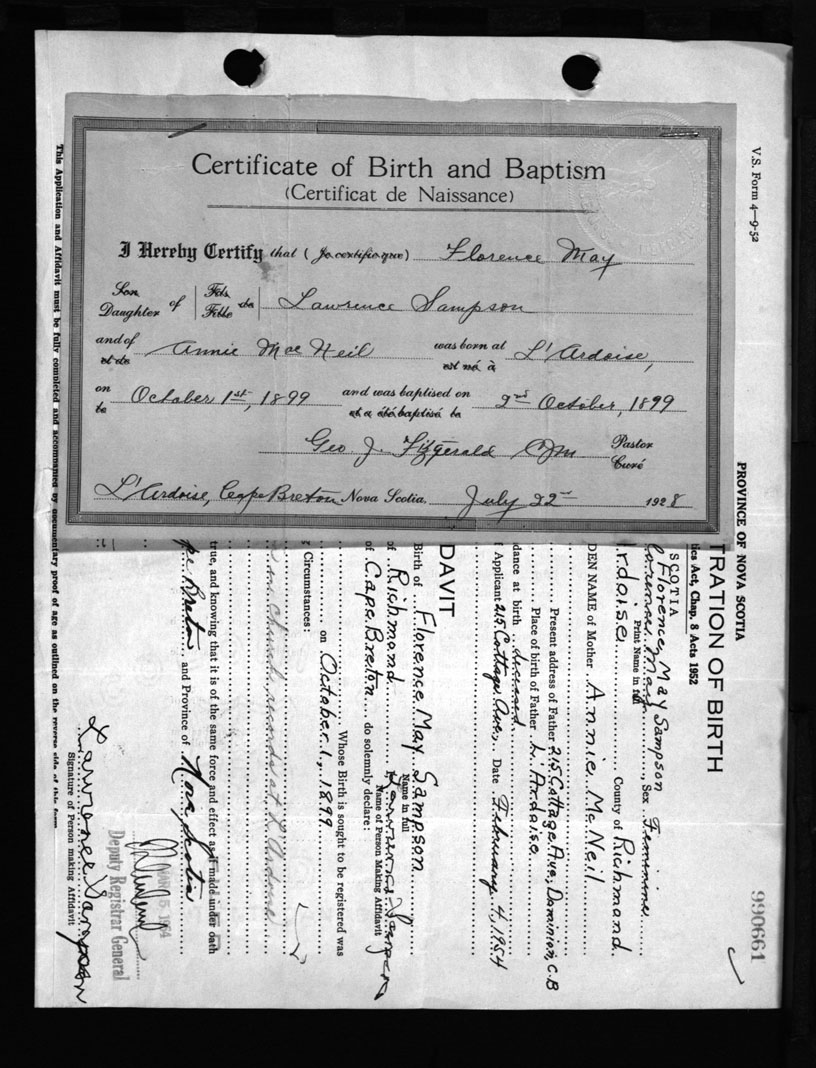 Certificate of Birth and Baptism
(Certificat de Naissance)
I Hereby Certify that (Je certifie que) Florence May
Son
Daughter of Fils Fille de Lawrence Sampson
and of Annie MacNeil was born at L'Ardoise,
et de est né à
on October 1st, 1899 and was baptised on 2nd October, 1899
le et a été baptisé le
Geo J. Fitzgerald Pastor
Curé
L'Ardoise, Cape Breton Nova Scotia, July 22nd 1928
V.S. Form 4—9-52
PROVINCE OF NOVA SCOTIA
TRATION OF BIRTH
ties Act, Chap. 8 Acts 1952
SCOTIA
Florence May Sampson
May, Sex Feminine
Print Name in full
rdoise County of Richmond.
DEN NAME of Mother Annie McNeil
Present address of Father 215 Cottage Ave, Dominion, C.B
Place of birth of Father L'Ardoise
dance at birth deceased
Applicant 215 Cottage Ave, Date February 4, 1954
DAVIT
Birth of Florence May Sampson
Name in full
of Richmond
Name of Person Making Affidavit
of Cape Breton do solemnly declare:
Whose Birth is sought to be registered was
on October 1, 1899
Circumstances:
church records at L'Ardoise
true, and knowing that it is of the same force and effect as if made under oath
pe Breton and Province of Nova Scotia
Deputy Registrar General
Lawrence Sampson
Signature of Person making Affidavit
This Application and Affidavit must be fully completed and accompanied by documentary proof of age as outlined on the reverse side of this form
990661